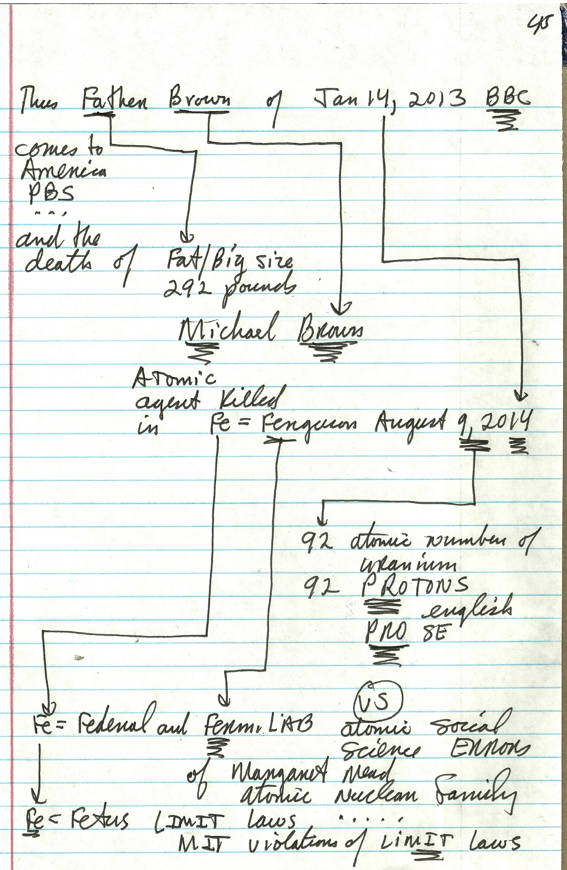 45
Thus Father Brown of Jan 14, 2013 BBC
comes to
America
PBS
.. . .
and the
death of Fat/Big size
292 pounds
Michael Brown
Atomic
agent Killed
in Fe = Ferguson August 9, 2014
92 atomic number of
uranium
92 PROTONS
english
PRO SE
VS
Fe = Federal and Fermi LAB atomic social
science ERRORS
of Margaret Mead
atomic Nuclear Family
Fe = Fetus LIMIT laws .....
MIT violations of LiMIT laws